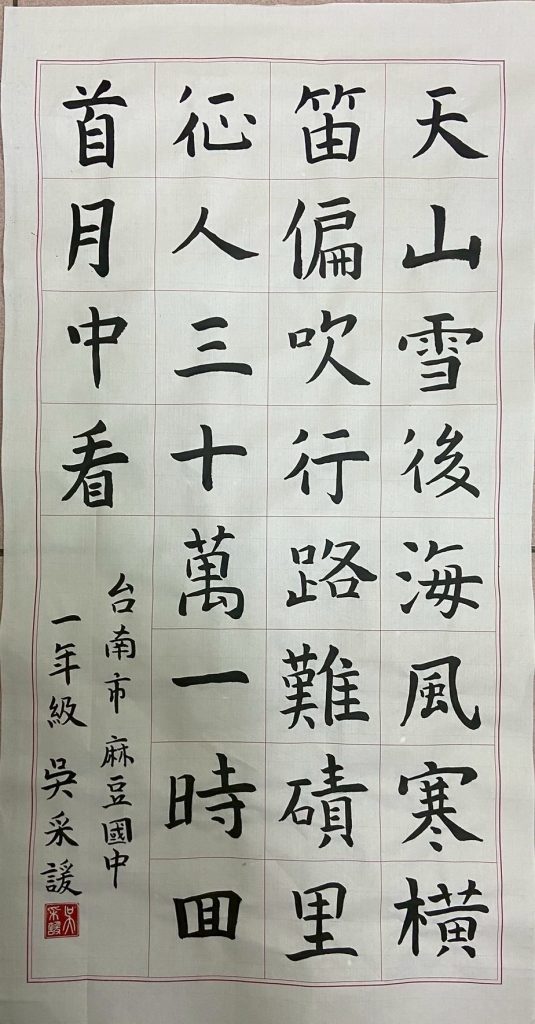 天山雪後海風寒橫
笛偏吹行路難磧里
征人三十萬一時回
首月中看
台南市麻豆國中
一年級 吳采諼
吳采諼